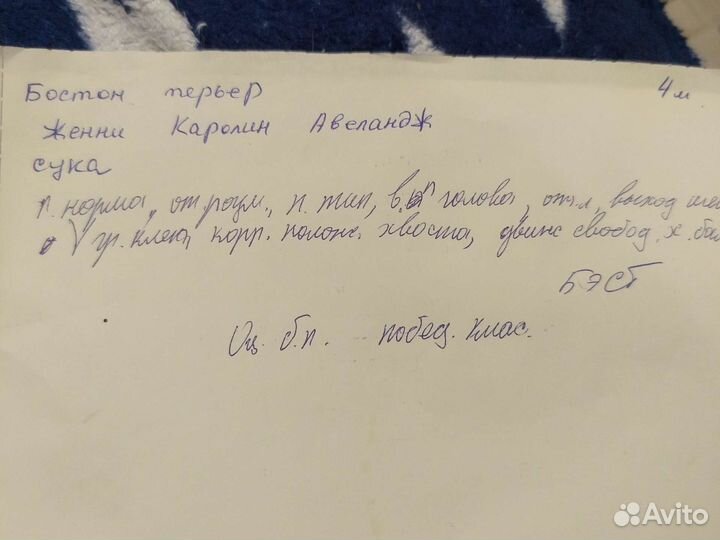 Бостон терьер 4 м.
Женни Каролин Авеландж
сука
п. норма, от. роум., п. тип, в. голова, отл, выход шеи
гр. клетка, корр. полож. хвоста, движ свобод. х. бал
БЭСТ
Оц. б.п. побед. клас.
Avito